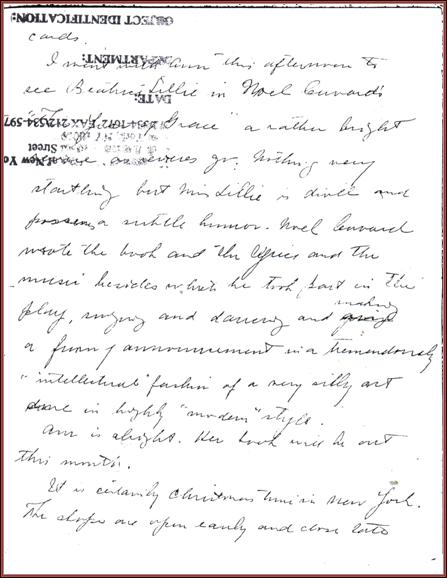 OBJECT IDENTIFICATION:
cards.
DEPARTMENT:
I went with Ann this afternoon to
see Beatrice Lillie in Noel Coward's
DATE:
Grace" a rather bright
Street
as revues go. Nothing very
startling but Miss Lillie is divine and
possesses a subtle humor. Noel Coward
wrote the book and the lyrics and the
music besides which he took part in the
play, singing and dancing and making
a funny announcement in a tremendously
"intellectual" fashion of a very silly act
done in highly "modern" style.
Ann is alright. Her book will be out
this month.
It is certainly Christmas time in New York.
The shops are open early and close late